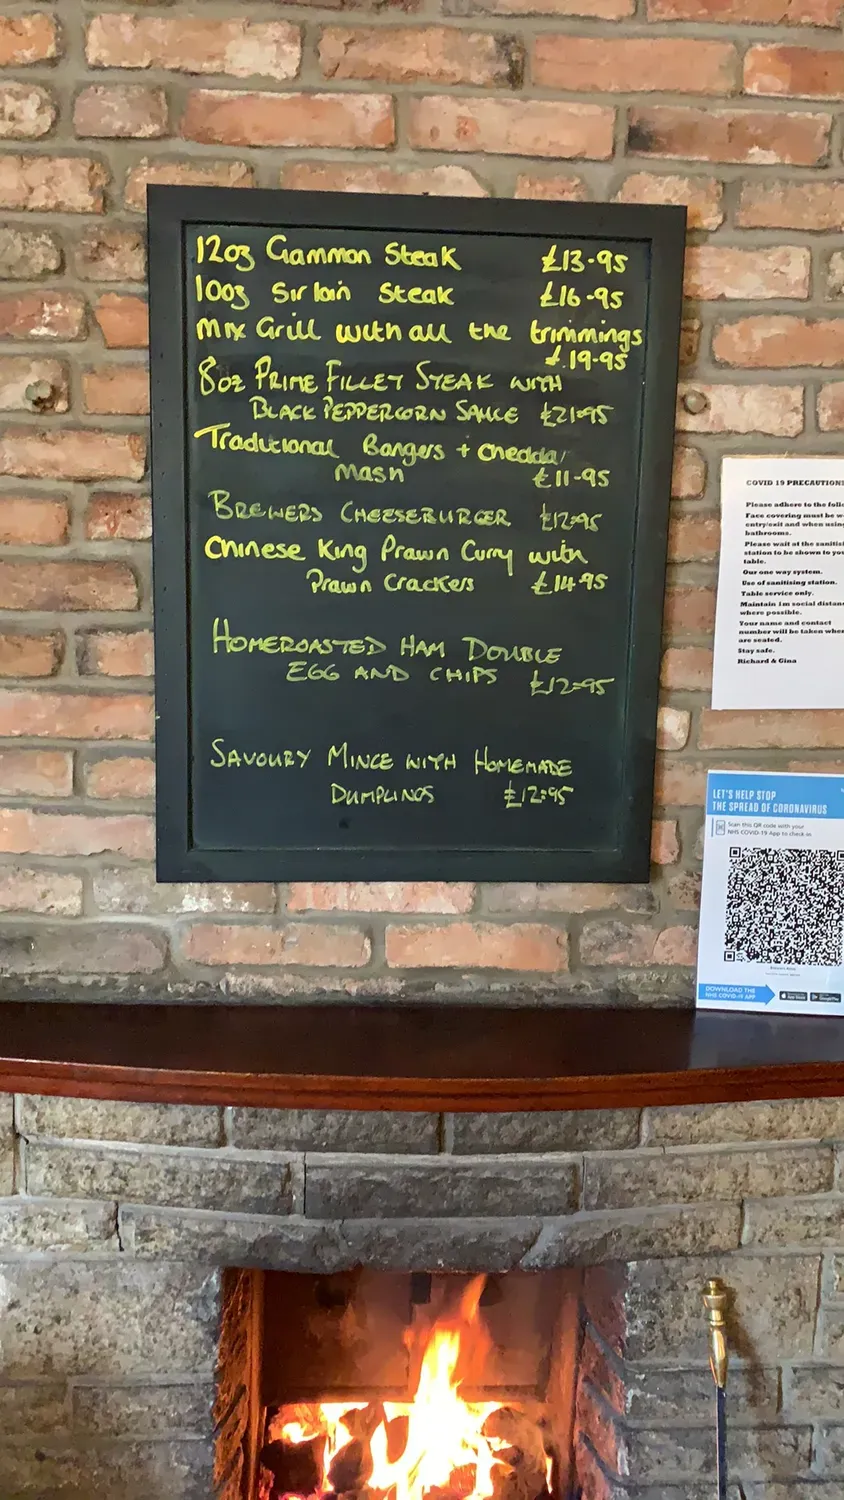 12oz Gammon Steak £13-95
10oz Sirloin Steak £16-95
Mix Grill with all the trimmings
£19-95
8oz Prime Fillet Steak with
Black Peppercorn Sauce £21-95
Traditional Bangers + Chedda
Mash £11-95
Brewers Cheeseburger £12-95
Chinese King Prawn Curry with
Prawn Crackers £14-95
Homeroasted Ham Double
Egg and Chips £12-95
Savoury Mince with Homemade
Dumplings £12-95
COVID 19 PRECAUTION
Please adhere to the follo
Face covering must be w
entry/exit and when using
bathrooms.
Please wait at the sanitisi
station to be shown to you
table.
Our one way system.
Use of sanitising station.
Table service only.
Maintain 1m social distan
where possible.
Your name and contact
number will be taken whe
are seated.
Stay safe.
Richard & Gina
LET'S HELP STOP
THE SPREAD OF CORONAVIRUS
Scan this QR code with your
NHS COVID-19 App to check in
DOWNLOAD THE
NHS COVID-19 APP
App Store Google Play